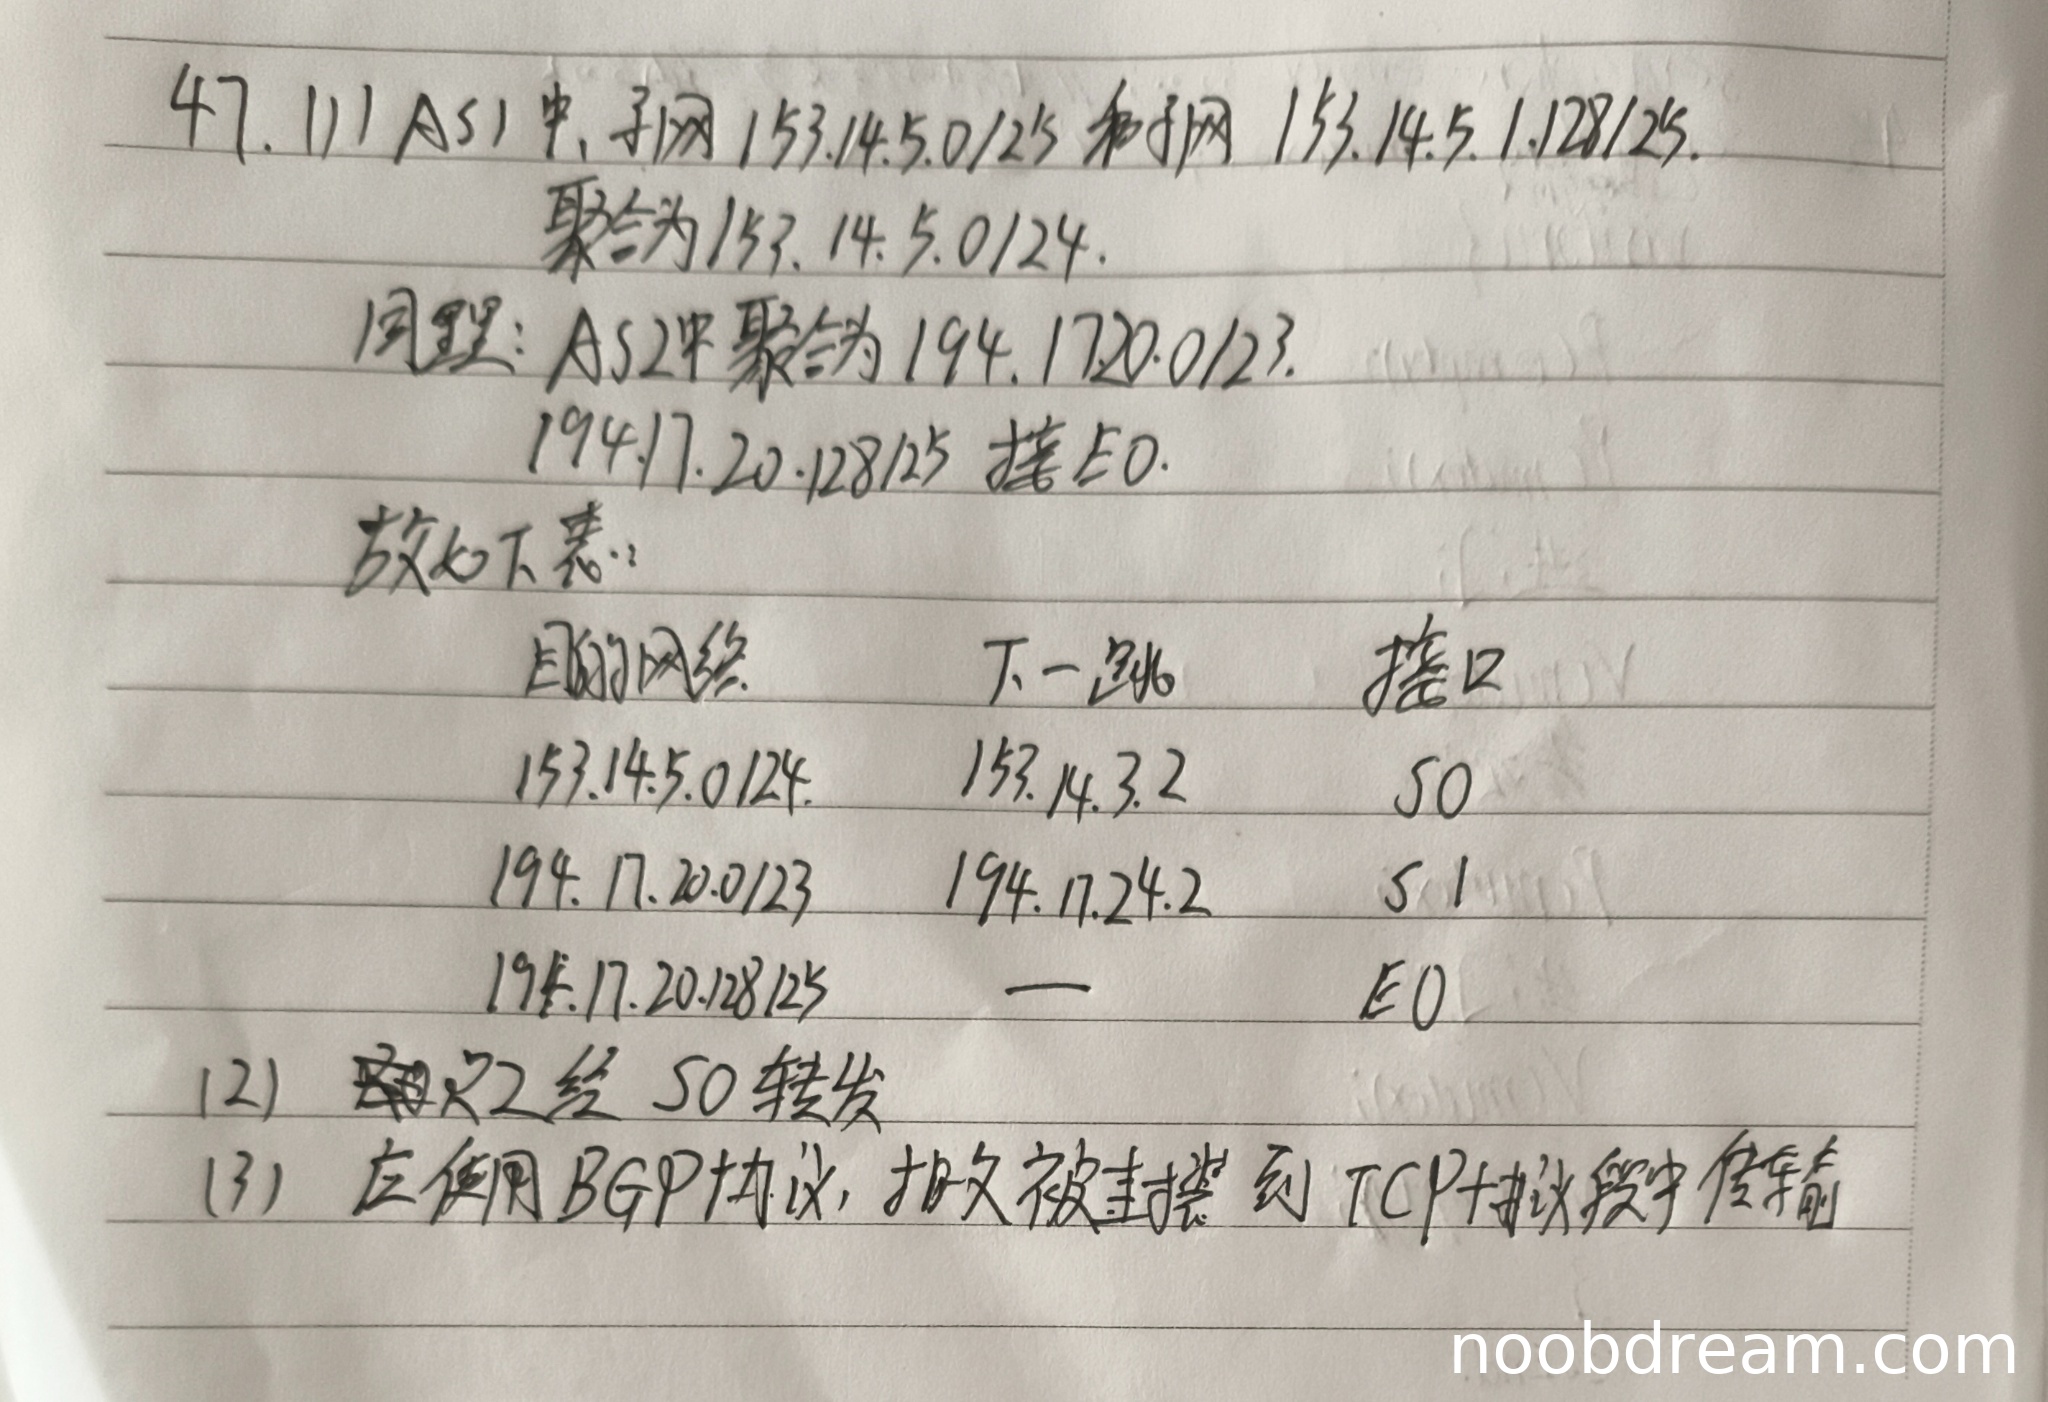 47. (1) AS1中,子网153.14.5.0/25和子网 153.14.5.1.128/25.
聚合为153.14.5.0/24.
同理:AS2中聚合为194.17.20.0/23.
194.17.20.128/25 接E0.
故如下表:
目的网络 下一跳 接口
153.14.5.0/24. 153.14.3.2 S0
194.17.20.0/23 194.17.24.2 S1
194.17.20.128/25 — E0
(2) R2经 S0 转发
(3) 应使用BGP协议,报文被封装到TCP协议段中传输
noobdream.com